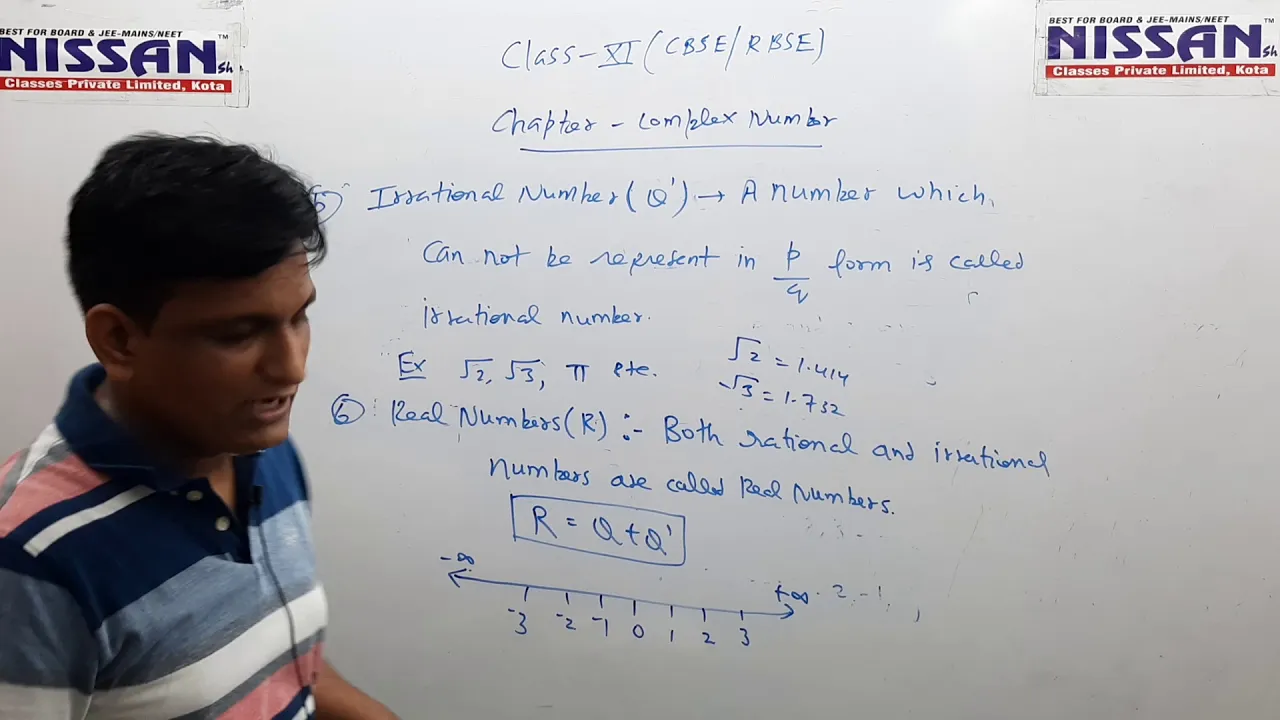 BEST FOR BOARD & JEE-MAINS/NEET
NISSAN Sh
TM
Classes Private Limited, Kota
BEST FOR BOARD & JEE-MAINS/NEET
NISSAN Sh
TM
Classes Private Limited, Kota
Class - XI (CBSE/RBSE)
Chapter - Complex Number
5 Irrational Number (Q') → A number which
Can not be represent in p/q form is called
irrational number.
Ex √2, √3, π etc.
√2 = 1.414
√3 = 1.732
6 Real Numbers (R) :- Both rational and irrational
numbers are called Real Numbers.
R = Q + Q'
-∞ +∞ 2, -1
-3 -2 -1 0 1 2 3